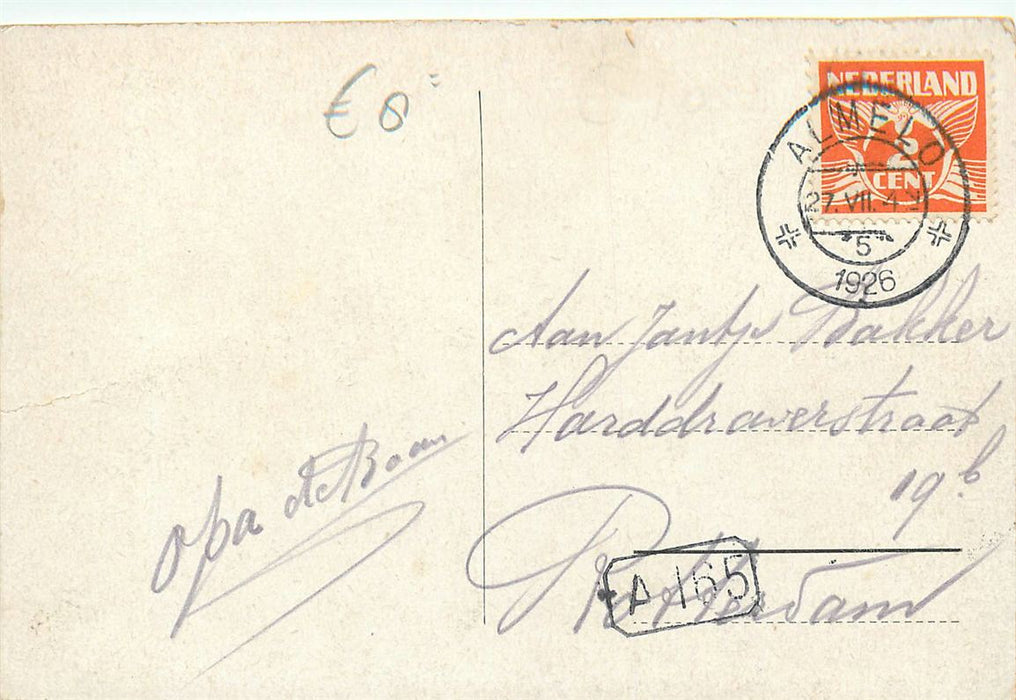 € 8 =
NEDERLAND
2
CENT
ALMELO
27.VII. 4
5
1926
Aan Jantje Bakker
Harddraverstraat
19b
Rotterdam
A 165
opa de Boan